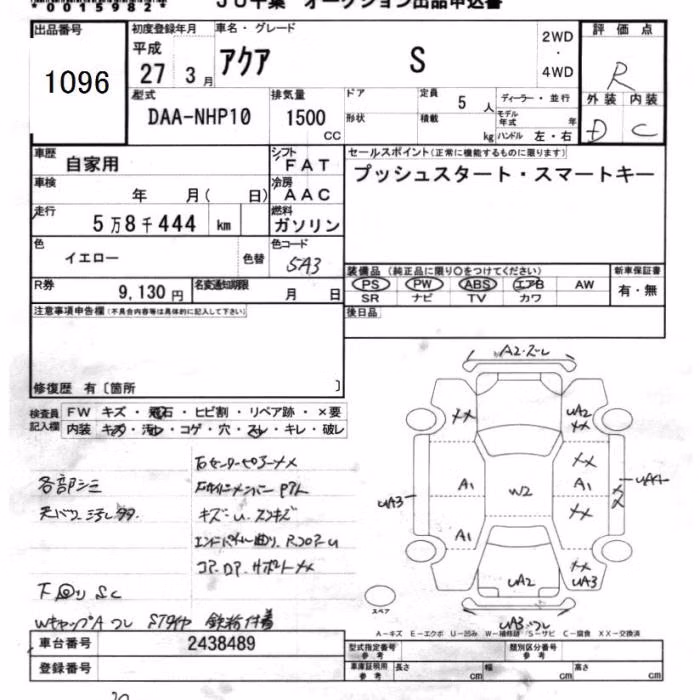 00159827
JU千葉 オークション出品申込書
出品番号
1096
初度登録年月
平成
27 3月
車名・グレード
アクア S
2WD
・
4WD
評価点
R
外装 内装
D C
型式
DAA-NHP10
排気量
1500
CC
ドア
形状
定員 5 人
積載 kg
ディーラー・並行
モデル
年式 年
ハンドル 左・右
車歴
自家用
シフト
FAT
車検
年 月( 日)
冷房
AAC
走行
5万8千444 km
燃料
ガソリン
色
イエロー
色替
色コード
5A3
R券
9,130 円
名変通知期限
月 日
セールスポイント(正常に機能するものに限ります)
プッシュスタート・スマートキー
装備品 (純正品に限り○をつけてください)
PS PW ABS エアB AW
SR ナビ TV カワ
新車保証書
有・無
後日品
注意事項申告欄(不具合内容等は具体的に記入して下さい)
修復歴 有〔箇所 〕
検査員
記入欄
FW キズ・飛石・ヒビ割・リペア跡・×要
内装 キズ・汚れ・コゲ・穴・スレ・キレ・破レ
各部シミ
キズ・U・スリキズ
コア. DA. サポートXX
下回り SC
WキャップA
鉄粉付着
A2・ズレ
XX
UA2
XX
XX
A1
A1
W2
UA3
UA4
XX
A1
XX
UA2
UA3
UA3
スペア
A-キズ E-エクボ U-凹み W-補修跡 S-サビ C-腐食 XX-交換済
車台番号
2438489
登録番号
型式指定番号
参考
類別区分番号
参考
車庫証明用
参考
長さ cm
幅 cm
高さ cm